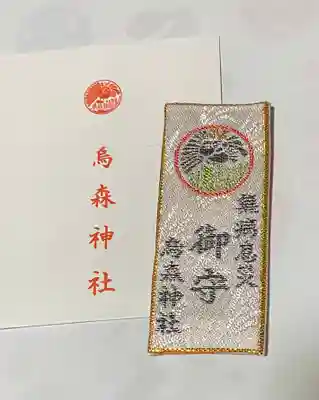 烏森神社
無滅息災
御守
烏森神社